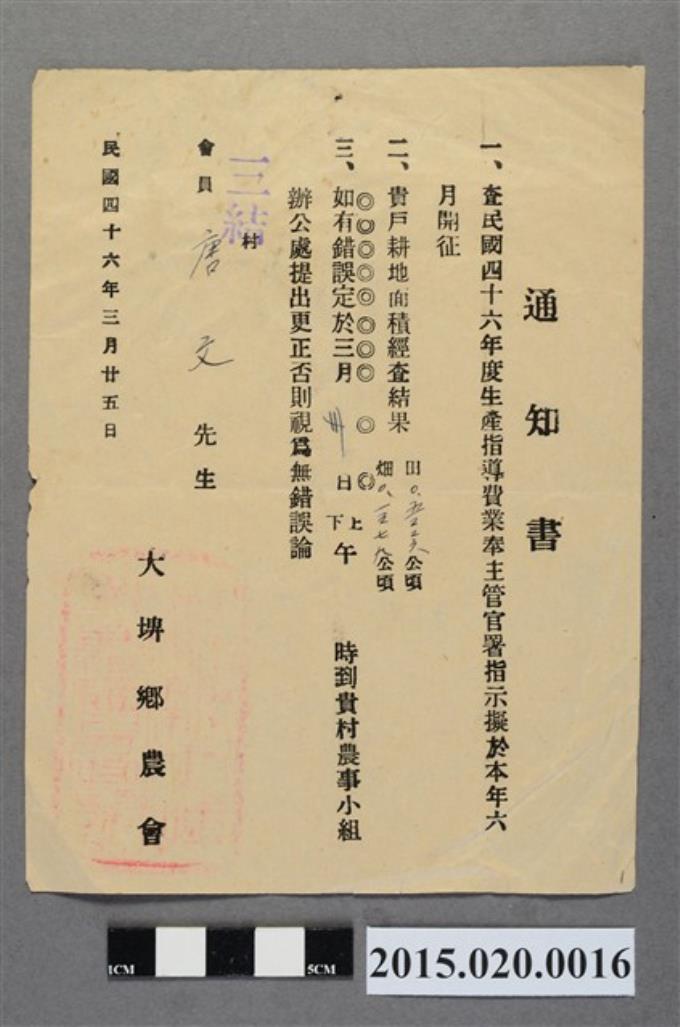 通知書
一、查民國四十六年度生產指導費業奉主管官署指示擬於本年六
月開征
二、貴戶耕地面積經查結果
田0.五二六公頃
畑0.一三七九公頃
◎◎◎◎◎◎◎◎ ◎ ◎
三、如有錯誤定於三月卅日上下午 時到貴村農事小組
辦公處提出更正否則視為無錯誤論
三結村
會員 唐文 先生
大埤鄉農會
民國四十六年三月廿五日
1CM
5CM
2015.020.0016